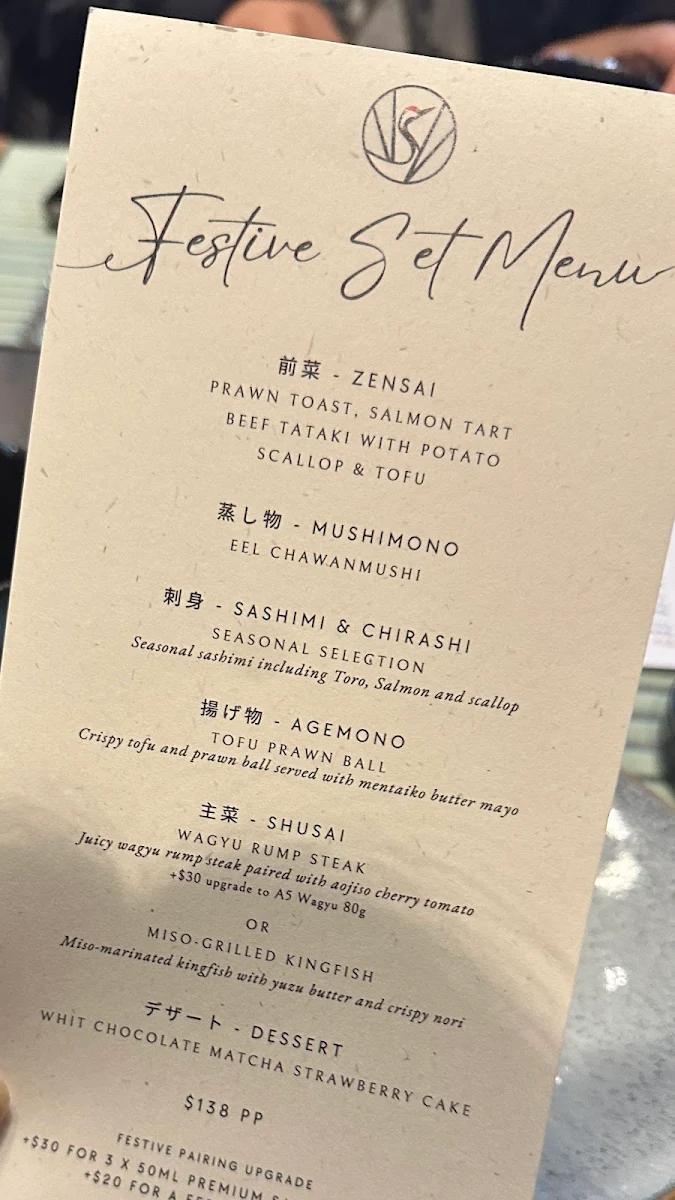 Festive Set Menu
前菜 - ZENSAI
PRAWN TOAST, SALMON TART
BEEF TATAKI WITH POTATO
SCALLOP & TOFU
蒸し物 - MUSHIMONO
EEL CHAWANMUSHI
刺身 - SASHIMI & CHIRASHI
SEASONAL SELECTION
Seasonal sashimi including Toro, Salmon and scallop
揚げ物 - AGEMONO
TOFU PRAWN BALL
Crispy tofu and prawn ball served with mentaiko butter mayo
主菜 - SHUSAI
WAGYU RUMP STEAK
Juicy wagyu rump steak paired with aojiso cherry tomato
+$30 upgrade to A5 Wagyu 80g
OR
MISO-GRILLED KINGFISH
Miso-marinated kingfish with yuzu butter and crispy nori
デザート - DESSERT
WHIT CHOCOLATE MATCHA STRAWBERRY CAKE
$138 PP
FESTIVE PAIRING UPGRADE
+$30 FOR 3 X 50ML PREMIUM
+$20 FOR A